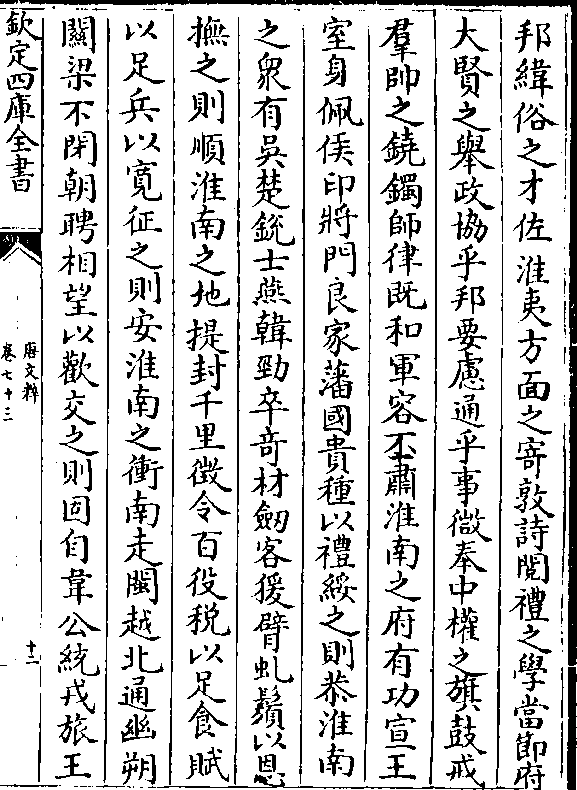 邦緯俗之才佐淮夷方面之寄敦詩閱禮之學當節府
大賢之舉政協乎邦要慮通乎事微奉中權之旗鼓戒
羣帥之鐃鐲師律既和軍容丕肅淮南之府有功宣王
室身佩侯印將門良家藩國貴種以禮綏之則恭淮南
之衆有吳楚銳士燕韓勁卒竒材劒客猨臂虬鬚以恩
撫之則順淮南之地提封千里徵令百役税以足食賦
以足兵以寛征之則安淮南之衝南走閩越北通幽朔
關梁不閉朝聘相望以歡交之則固自韋公統戎旅王
欽定四庫全書
唐文粹
卷七十三
十三